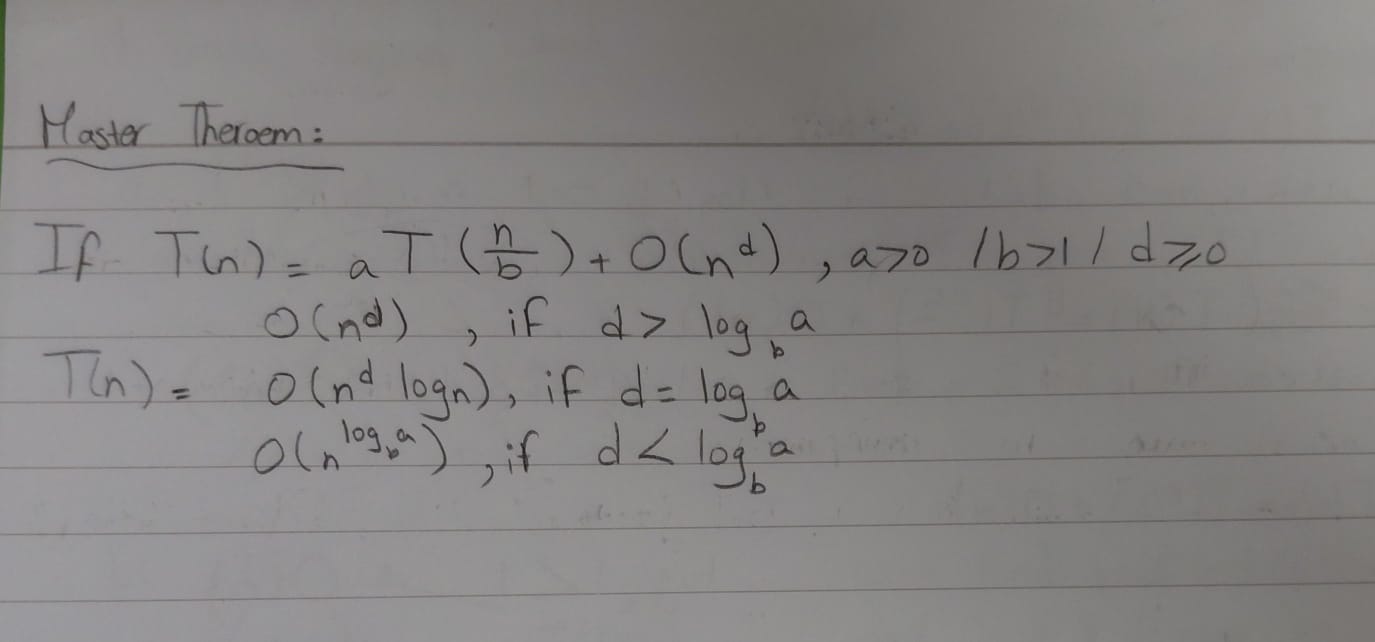 Master Theroem:
If T(n) = a T (n/b) + O(n^d) , a>0 / b>1 / d⩾0
O(n^d) , if d > log_b a
T(n) = O(n^d log n), if d = log_b a
O(n^{log_b a}) , if d < log_b a